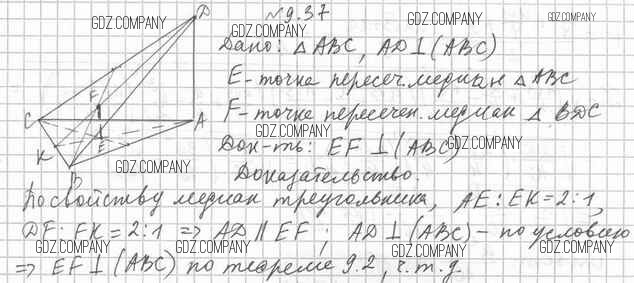 №9.37
D
GDZ.COMPANY GDZ.COMPANY GDZ.COMPANY
Дано: △ABC, AD⊥(ABC)
E - точка пересеч. медиан △ABC
F
GDZ.COMPANY GDZ.COMPANY GDZ.COMPANY
F - точка пересечен. медиан △BDC
C A
GDZ.COMPANY
Док-ть: EF⊥(ABC)
K E
GDZ.COMPANY GDZ.COMPANY
B
Доказательство.
По свойству медиан треугольника, AE:EK=2:1,
GDZ.COMPANY GDZ.COMPANY GDZ.COMPANY
DF:FK=2:1 ⇒ AD∥EF; AD⊥(ABC) - по условию
GDZ.COMPANY GDZ.COMPANY GDZ.COMPANY GDZ.COMPANY
⇒ EF⊥(ABC) по теореме 9.2, ч.т.д.